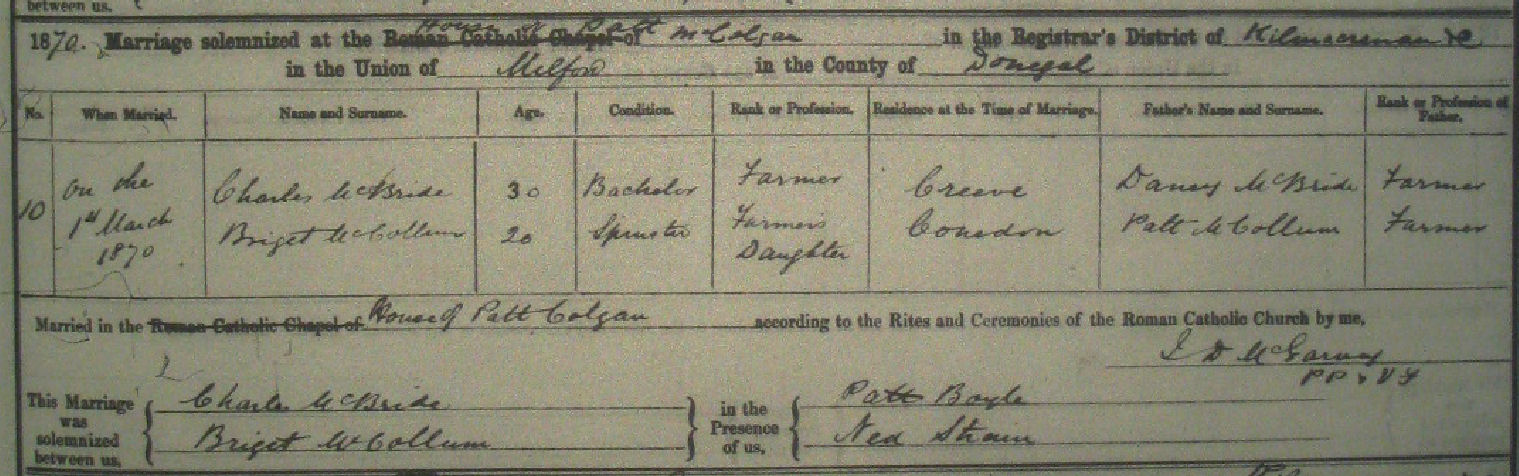 between us.
House of Patt
1870. Marriage solemnized at the Roman Catholic Chapel of McColgan in the Registrar's District of Kilmacrenan &c
in the Union of Milford in the County of Donegal
No. When Married. Name and Surname. Age. Condition. Rank or Profession. Residence at the Time of Marriage. Father's Name and Surname. Rank or Profession of Father.
10 On the 1st March 1870
Charles McBride 30 Bachelor Farmer Creeve Farmer
Briget McCollum 20 Spinster Farmer's Daughter Patt McCollum Farmer
Married in the Roman Catholic Chapel of House of Patt Colgan according to the Rites and Ceremonies of the Roman Catholic Church by me,
J D McGarvey
PP & VF
This Marriage was solemnized between us,
Charles McBride
Briget McCollum
in the Presence of us,
Patt Boyle
Ned Strain